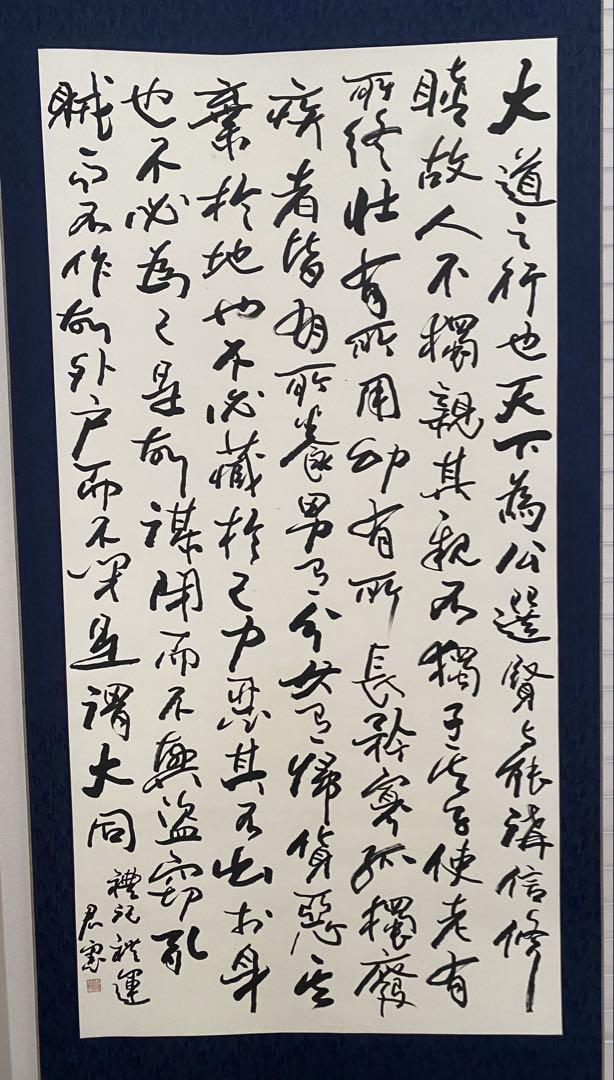 大道之行也天下為公選賢与能講信修
睦故人不獨親其親不獨子其子使老有
所終壮有所用幼有所長矜寡孤獨廢
疾者皆有所養男有分女有歸貨惡其
棄於地也不必藏於己力惡其不出於身
也不必為己是故謀閉而不興盜竊亂
賊而不作故外户而不閉是謂大同
禮記禮運
君憲